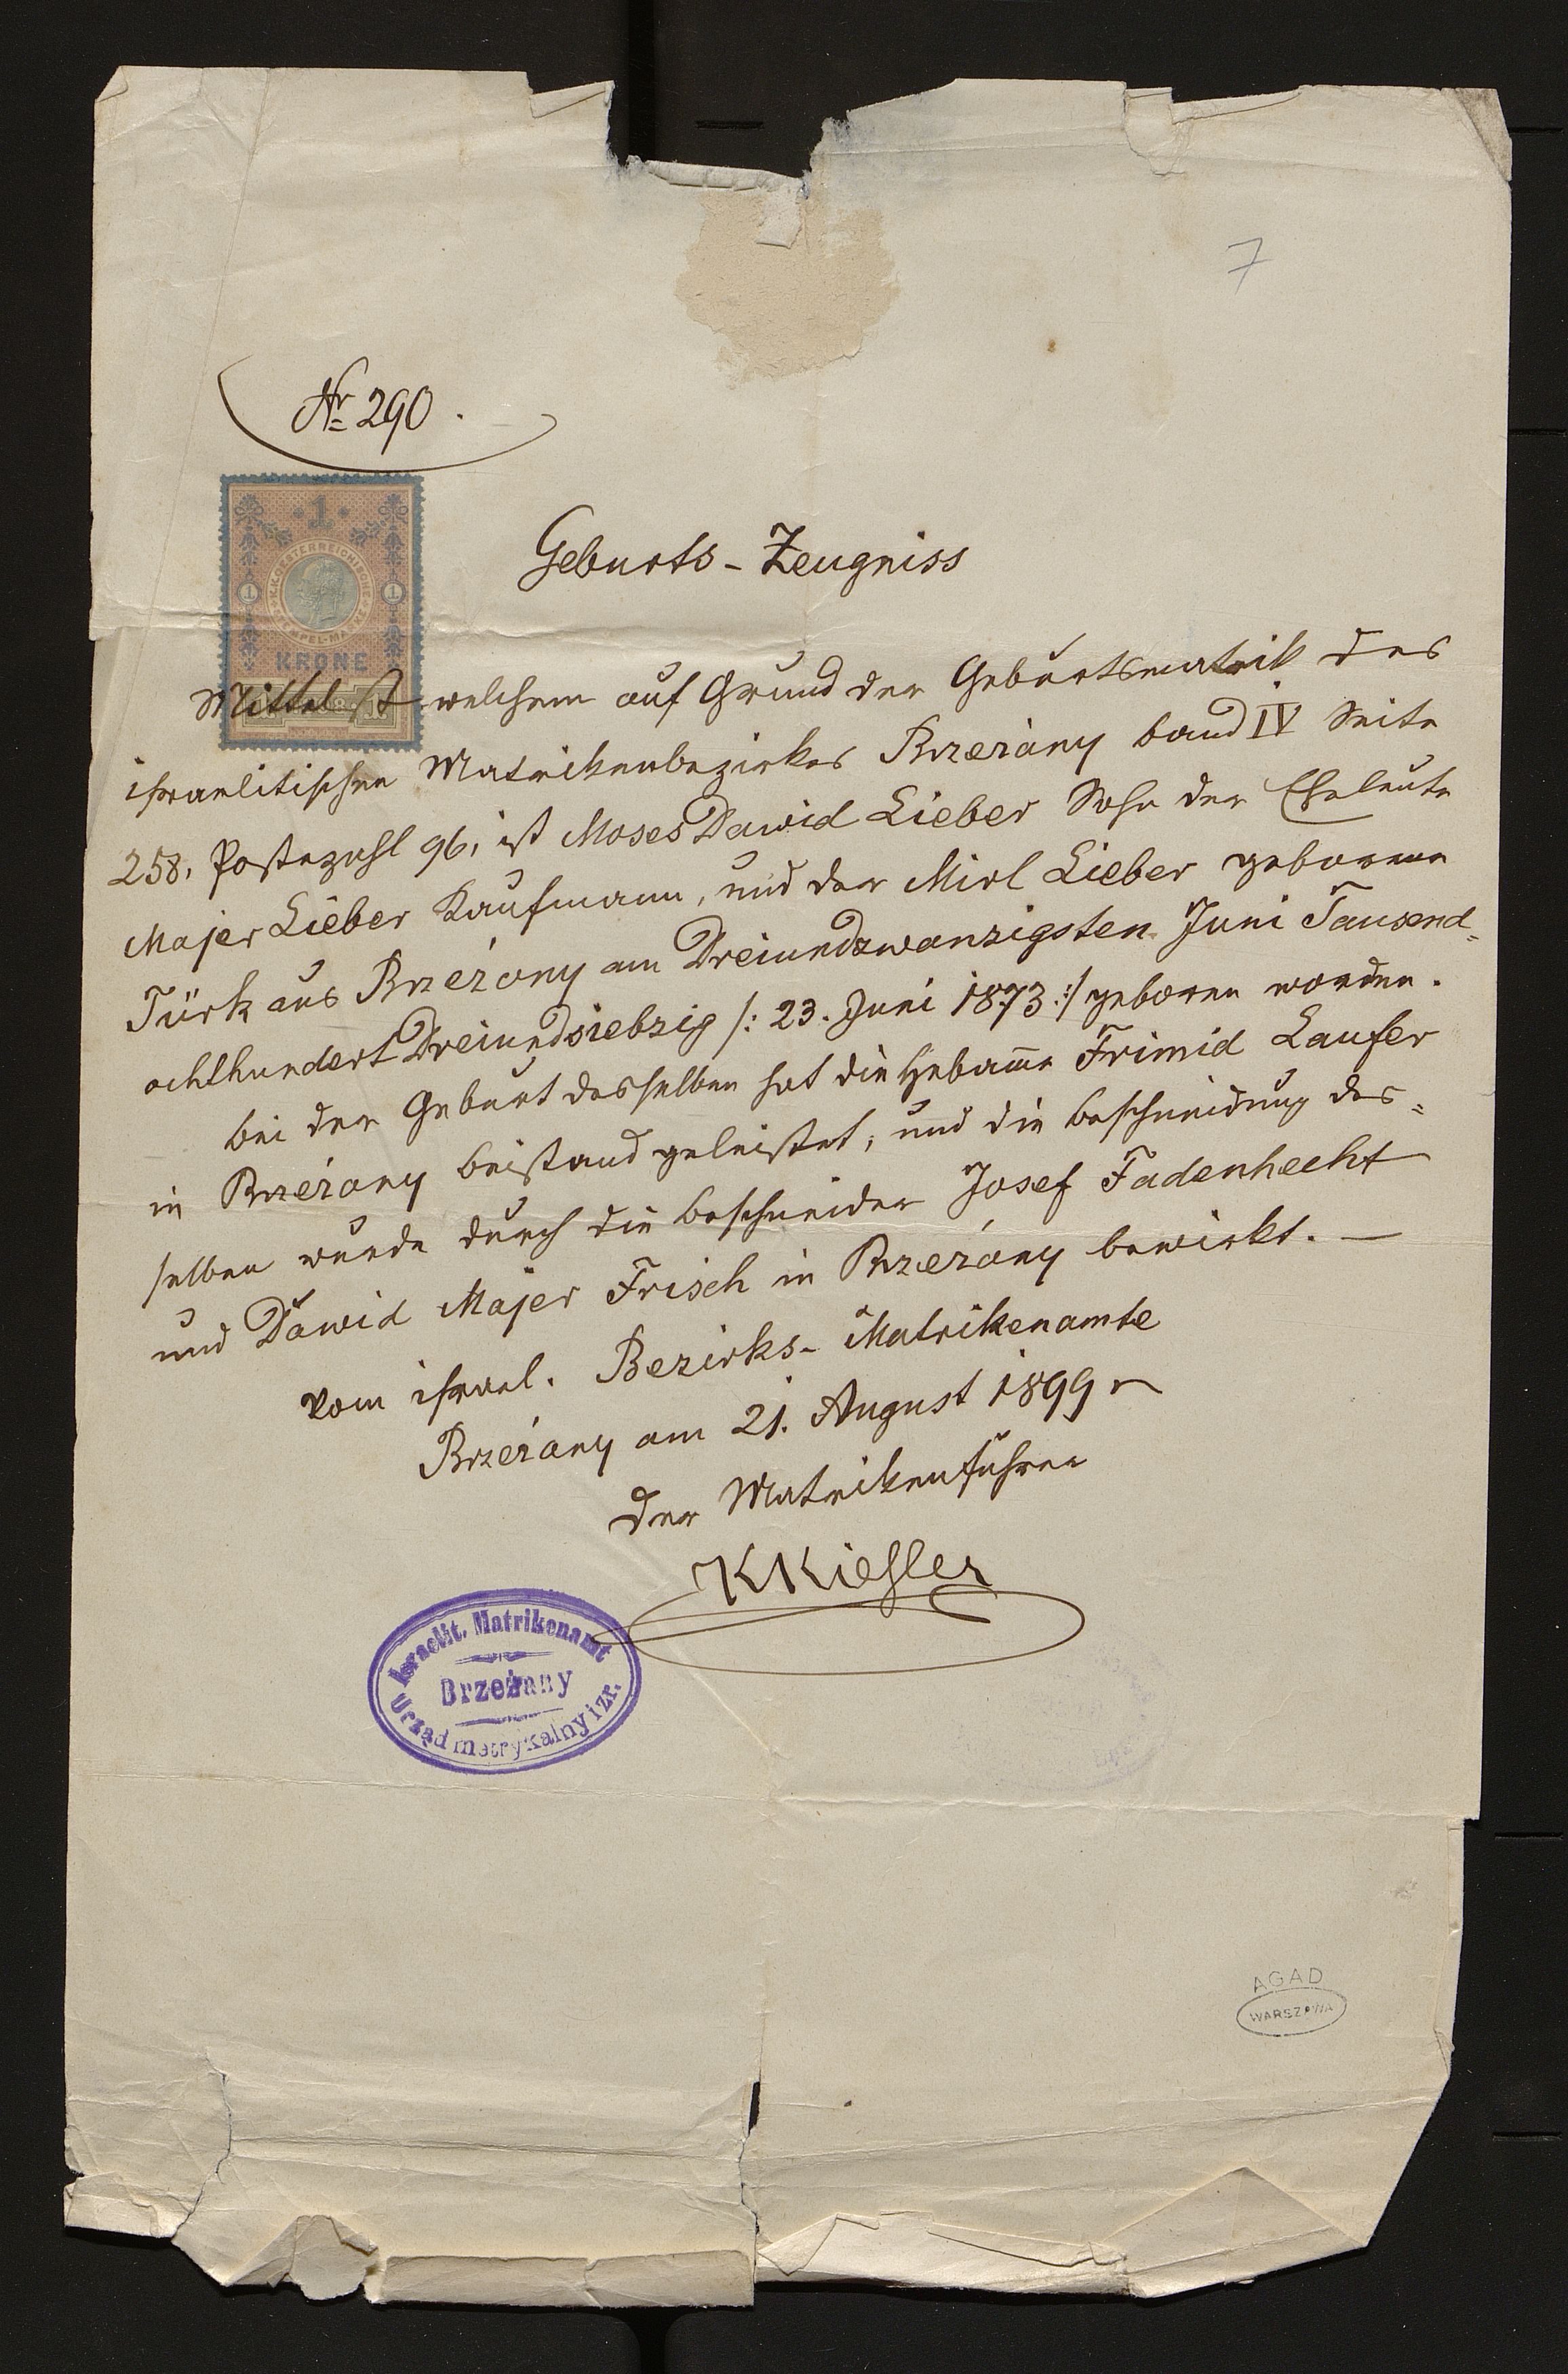 7
Nr 290.
1
K.K. OESTERREICHISCHE STEMPEL-MARKE
1 1
KRONE
Geburts-Zeugniss
Mittelst welchem auf Grund der Geburtsmatrik des
israelitischen Matrikenbezirkes Brzeżany band IV Seite
258, Postzahl 96, ist Moses Dawid Lieber Sohn der Eheleute
Majer Lieber Kaufmann, und der Mirl Lieber geborene
Türk aus Brzeżany am Dreiundzwanzigsten Juni Tausend=
achthundert Dreiundsiebzig /: 23. Juni 1873 :/ geboren worden.
bei der Geburt desselben hat die Hebame Frimid Laufer
in Brzeżany beistand geleistet, und die beschneidung des=
selben wurde durch die beschneider Josef Fadenhecht
und Dawid Majer Frisch in Brzeżany bewirkt. —
Vom israel. Bezirks-Matrikenamte
Brzeżany am 21. August 1899
der Matrikenführer
KKiesler
Israelit. Matrikenamt
Brzeżany
Urząd metrykalny izr.
AGAD
WARSZAWA